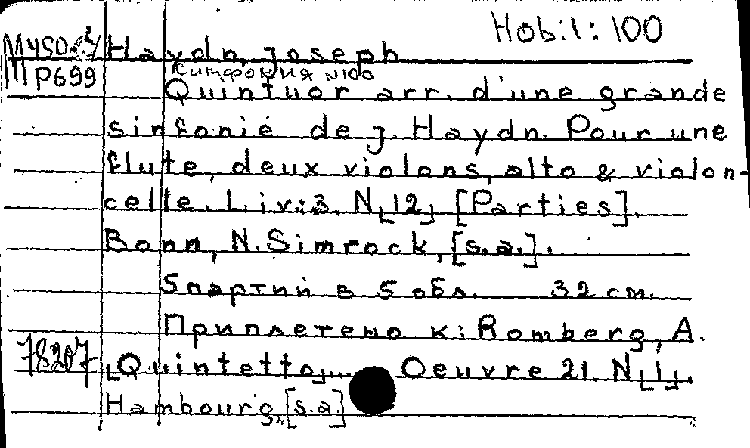 Hob: I: 100
Haydn, Joseph
П P699 Симфония N100
Quintuor arr. d'une grande
sinfonie de J. Haydn. Pour une
flute, deux violons, alto & violon-
celle. Liv: 3. N[12] [Parties].
Bonn, N. Simrock, [s.a.].
5 партий в 5 обл. 32 см.
Приплетено к: Romberg, A.
78207 [Quintetto]... Oeuvre 21. N[1].
Hambourg, [s.a.]